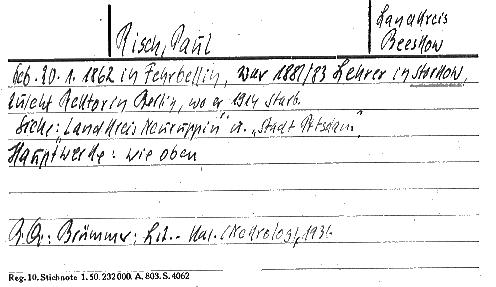 Risch, Paul
Landkreis
Beeskow
Geb. 20. 1. 1862 in Fehrbellin, war 1881/83 Lehrer in Storkow,
zuletzt Rektor in Berlin, wo er 1914 starb.
Siehe: "Landkreis Neuruppin" u. "Stadt Potsdam"
Hauptwerke: wie oben
Brümmer; Lit.- Kal. (Nekrolog), 1936
Reg. 10. Stichnote 1. 50. 232 000. A. 803. S. 4062